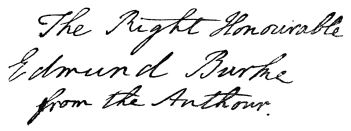 The Right Honourable
Edmund Burke
from the Authour.